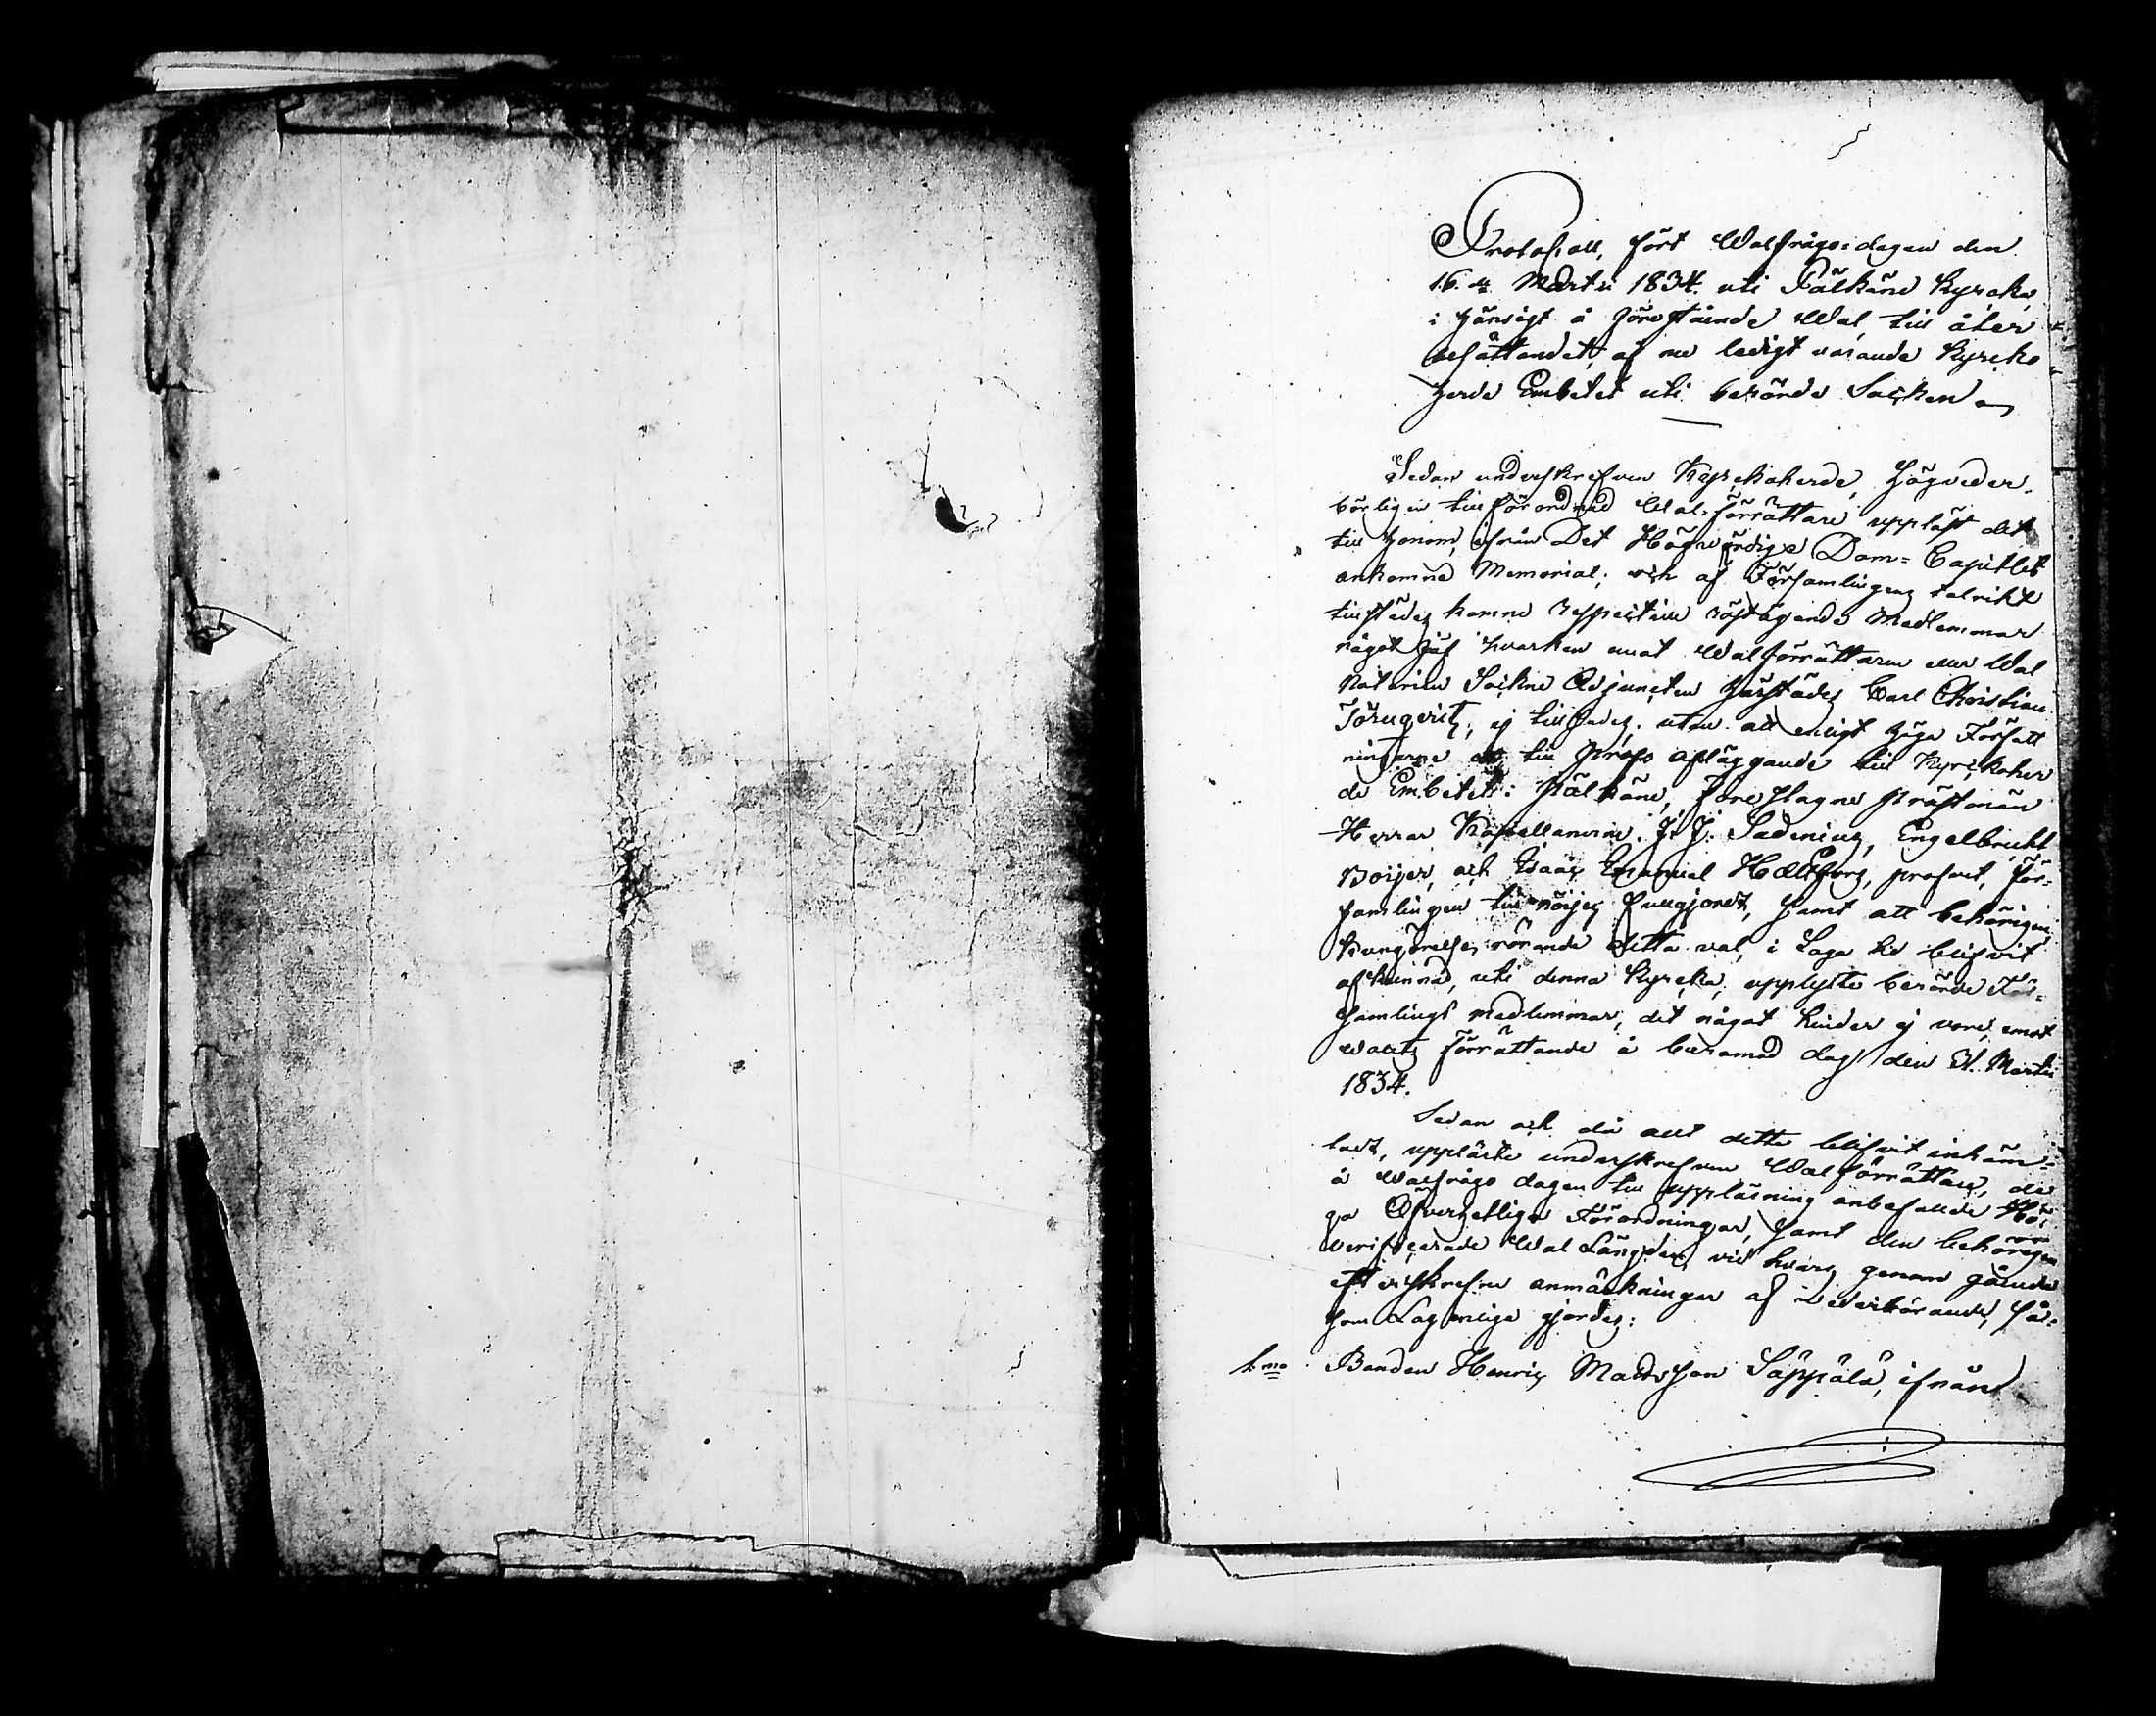 Protokoll, fört Walfrågo-dagen den
16.de Martii 1834. uti Pälkäne Kyrcka
i hänsigt å förestående Wal, till åter
besättandet, af nu ledigt varande Kyrcko
herde Embetet uti berörde Socken
Sedan underskrefven Kyrckoherde, högveder-
börligen tillförordnad Wal-förrättare uppläst det
till honom, ifrån Det Högwördiga Dom-Capitlet
ankomne Memorial; och af Församlingens talrikt
tillstädes komne respective röstägande Medlemmar
något jäf hvarken emot Walförrättaren eller Wal
Notarien Sockne Adjuncten härstädes Carl Christian
Törnqvist, ej till sades; utan att enligt höga Författ
ningarne till profs afläggande till Kyrckoher
de Embetet i Pälkäne, föreslagne Prästmän
Herrar Kapellanerne J. J. Sadenius, Engelbrecht
Boijer, och Isaac Emanuel Hällfors, profvet, För-
samlingen till nöijes fullgjordt, samt att behörigen
kungörelse, rörande detta val, i Laga tid blifvit
afkunnad, uti denna Kyrcka, upplyste berörde För-
samlings medlemmar, det något hinder ej vore emot
walets förrättande å berammad dag den 31. Martii
1834.
Sedan och då allt detta blifvit inhäm-
tadt, uppläste underskrefven Walförrättare, de
å Walfrågo dagen till uppläsning anbefallde Hö-
ga Öfverhetliga Förordningar, samt den behörigen
verificerade Wal Längden, vid hvars genom gående
efterskrefne anmärkningar af vederbörande, så-
som Lagenliga gjordes:
1.mo Bonden Henric Madsson Säppälä, ifrån